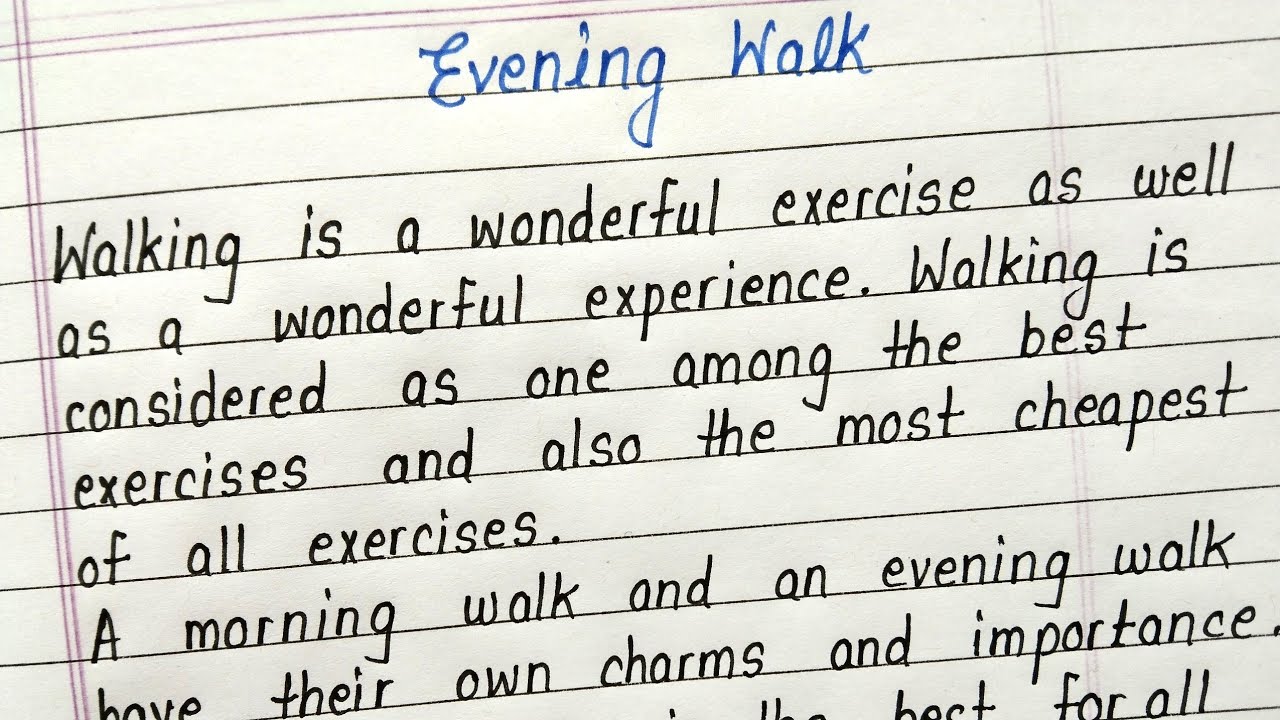 Evening Walk
Walking is a wonderful exercise as well
as a wonderful experience. Walking is
considered as one among the best
exercises and also the most cheapest
of all exercises.
A morning walk and an evening walk
have their own charms and importance.
the best for all